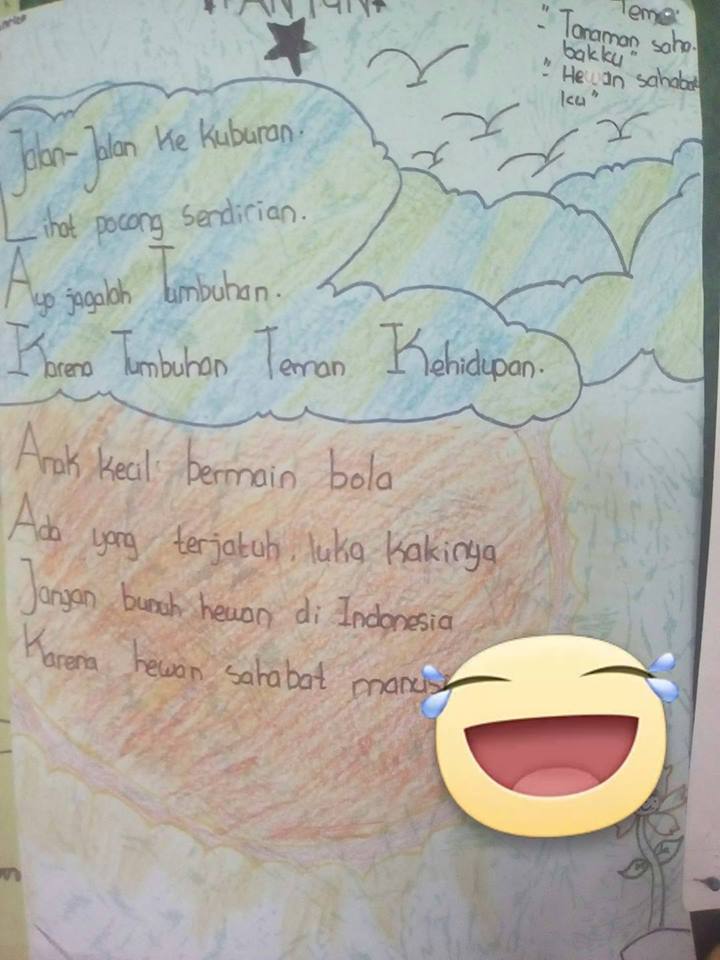 "PANTUN"
Tema:
- "Tanaman saha-
bakku"
- "Hewan sahabat
ku"
Jalan-Jalan Ke Kuburan.
Lihat pocong sendirian.
Ayo jagalah Tumbuhan.
Karena Tumbuhan Teman Kehidupan.
Anak kecil bermain bola
Ada yang terjatuh, luka kakinya
Jangan bunuh hewan di Indonesia
Karena hewan sahabat manus